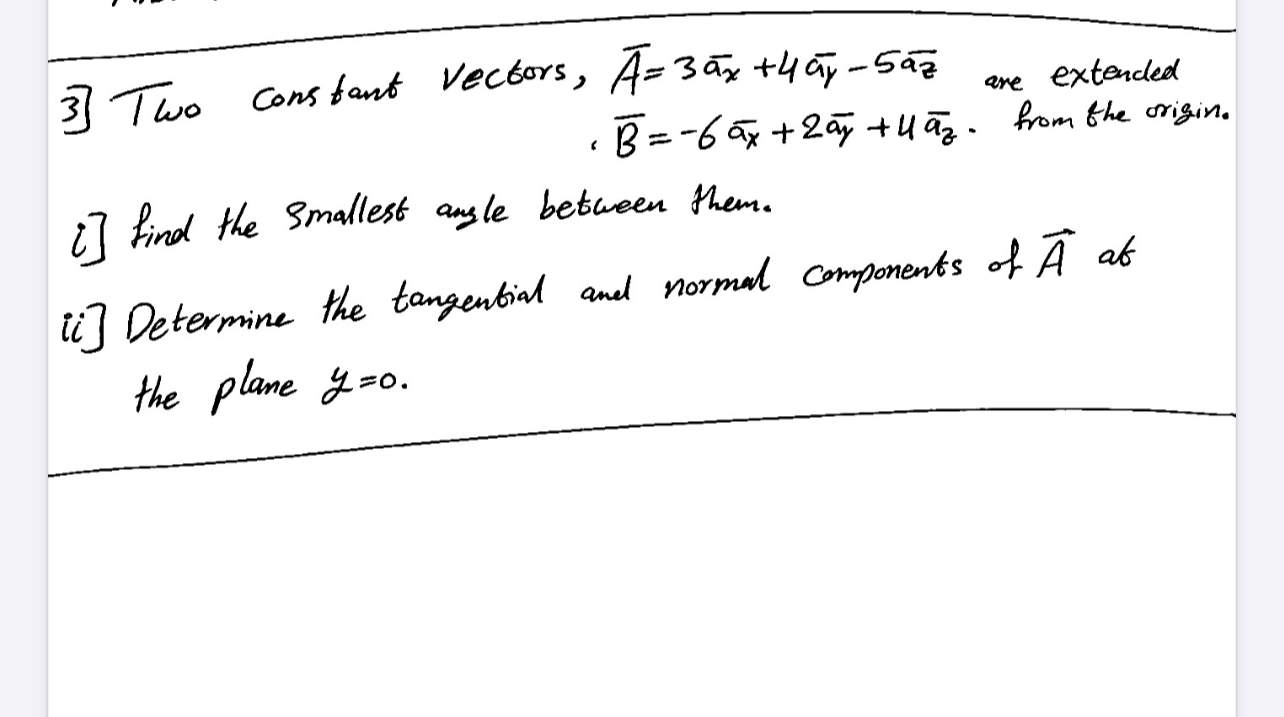 3] Two constant vectors, A̅ = 3 a̅x + 4 a̅y - 5 a̅z are extended
B̅ = -6 a̅x + 2 a̅y + 4 a̅z . from the origin.
i] find the smallest angle between them.
ii] Determine the tangential and normal components of A̅ at
the plane y=0.